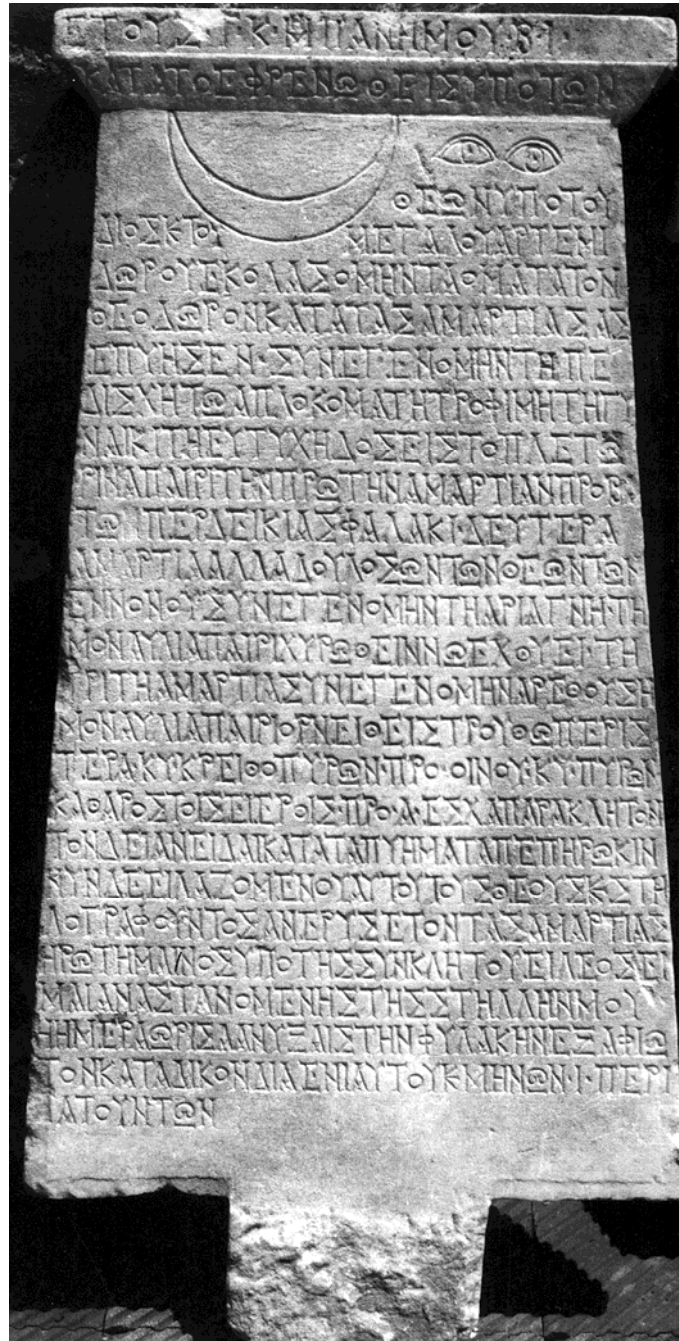 ΕΤΟΥΣ·Τ·Κ·ΜΗ·ΠΑΝΗΜΟΥ·Β·Ι·
ΚΑΤΑΤΟΕΦΡΕΝΩΘΕΙΣΥΠΟΤΩΝ
ΘΕΩΝΥΠΟΤΟΥ
ΔΙΟΣΚΤΟΥ ΜΕΓΑΛΟΥΑΡΤΕΜΙ
ΔΩΡΟΥΕΚΟΛΑΣΟΜΗΝΤΑΟΜΑΤΑΤΟΝ
ΘΕΟΔΩΡΟΝΚΑΤΑΤΑΣΑΜΑΡΤΙΑΣΑΣ
ΕΠΥΗΣΕΝ·ΣΥΝΕΓΕΝΟΜΗΝΤΗΠΕ
ΔΙΣΧΗΤΩΑΠΛΟΚΟΜΑΤΗΤΡΟΦΙΜΗΤΗΓΥ
ΝΑΙΚΙΤΗΕΥΤΥΧΗΔΟΣΕΙΣΤΟΠΛΕΤΩ
ΡΙΝΑΠΑΙΡΙΤΗΝΠΡΩΤΗΝΑΜΑΡΤΙΑΝΠΡΟΒΑ
ΤΩ ΠΕΡΔΕΙΚΙΑΣΦΑΛΑΚΙ·ΔΕΥΤΕΡΑ
ΑΜΑΡΤΙΑΑΛΛΑΔΟΥΛΟΣΩΝΤΩΝΘΕΩΝΤΩΝ
ΕΝΝΟΝΟΥΣΥΝΕΓΕΝΟΜΗΝΤΗΑΡΙΑΓΝΗ·ΤΗ
ΜΟΝΑΥΛΙΑΠΑΙΡΙΧΥΡΩΘΕΙΝΝΩΕΧΘΥΕΙ·ΤΗ
ΤΡΙΤΗΑΜΑΡΤΙΑΣΥΝΕΓΕΝΟΜΗΝΑΡΕΘΟΥΣΗ
ΜΟΝΑΥΛΙΑΠΑΙΡΙΟΡΝΕΙΘΕΙΣΤΡΟΥΘΩΠΕΡΙΣ
ΤΕΡΑ·ΚΥ·ΚΡΕΙΘΟΠΥΡΩΝ·ΠΡΟ·ΟΙΝΟΥ·ΚΥ·ΠΥΡΩΝ
ΚΑΘΑΡΟΣΤΟΙΣΕΙΕΡΟΙΣ·ΠΡΟ·Α·ΕΣΧΑΠΑΡΑΚΛΗΤΟΝ
ΤΟΝΔΕΙΑΝΕΙΔΑΙΚΑΤΑΤΑΠΥΗΜΑΤΑΠΕΠΗΡΩΚΙΝ
ΝΥΝΔΕΕΙΛΑΖΟΜΕΝΟΥΑΥΤΟΥΤΟΥΣΘΕΟΥΣΚΣΤΗ
ΛΟΓΡΑΦΟΥΝΤΟΣΑΝΕΡΥΣΕΤΟΝΤΑΣΑΜΑΡΤΙΑΣ
ΗΡΩΤΗΜΑΙΝΟΣΥΠΟΤΗΣΣΥΝΚΛΗΤΟΥΕΙΛΕΟΣΕΙ
ΜΑΙΑΝΑΣΤΑΝΟΜΕΝΗΣΤΗΣΣΤΗΛΛΗΝΜΟΥ
ΗΗΜΕΡΑΩΡΙΣΑΑΝΥΞΑΙΣΤΗΝΦΥΛΑΚΗΝΕΞΑΦΙΩ
ΤΟΝΚΑΤΑΔΙΚΟΝΔΙΑΕΝΙΑΥΤΟΥΚΜΗΝΩΝ·Ι·ΠΕΡΙ
ΠΑΤΟΥΝΤΩΝ